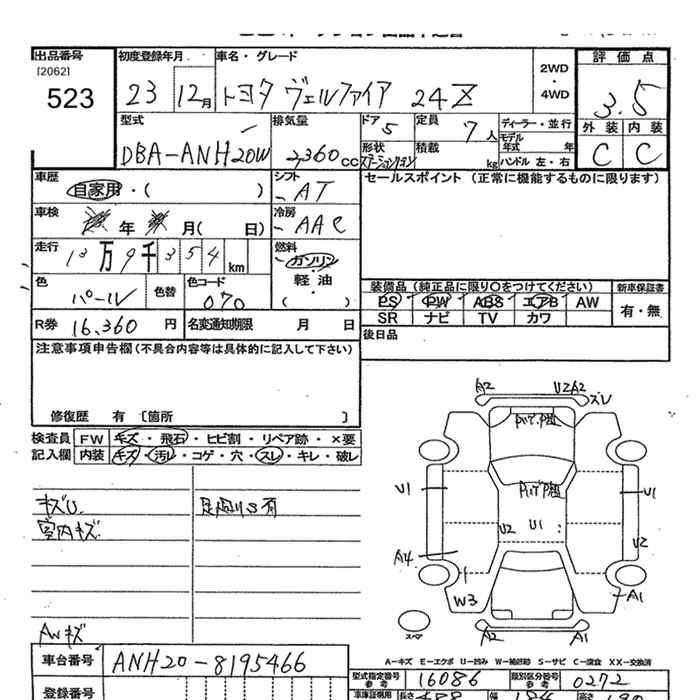 出品番号 初度登録年月 車名・グレード 2WD・4WD 評価点
[2062]
523 23 12月 トヨタ ヴェルファイア 24Z 3.5
外装 内装
C C
型式 排気量 ドア 5 定員 7人 ディーラー・並行
モデル年式 年
DBA-ANH20W 2,360cc 形状 ステーションワゴン 積載 kg ハンドル 左・右
車歴 自家用・( ) シフト AT セールスポイント (正常に機能するものに限ります)
車検 年 月( 日) 冷房 AAC
走行 13万9千354km 燃料 ガソリン・軽油・( )
色 パール 色替 色コード 070
装備品(純正品に限り○をつけてください) 新車保証書
PS PW ABS エアB AW 有・無
SR ナビ TV カワ
R券 16,360円 名変通知期限 月 日 後日品
注意事項申告欄(不具合内容等は具体的に記入して下さい)
修復歴 有 〔箇所 〕
検査員 FW キズ・飛石・ヒビ割・リペア跡・×要
記入欄 内装 キズ・汚レ・コゲ・穴・スレ・キレ・破レ
キズU 足廻りS有
室内キズ
AWキズ
A2 U2A2 ズレ
U1 U2 U1 U1
U2
A4
W3 A1
スペア A2 A1
A-キズ E-エクボ U-凹み W-補修跡 S-サビ C-腐食 XX-交換済
車台番号 ANH20-8195466
型式指定番号 参考 16086 類別区分番号 参考 0272
登録番号 車庫証明用 長さ 488 幅 184 高さ 190